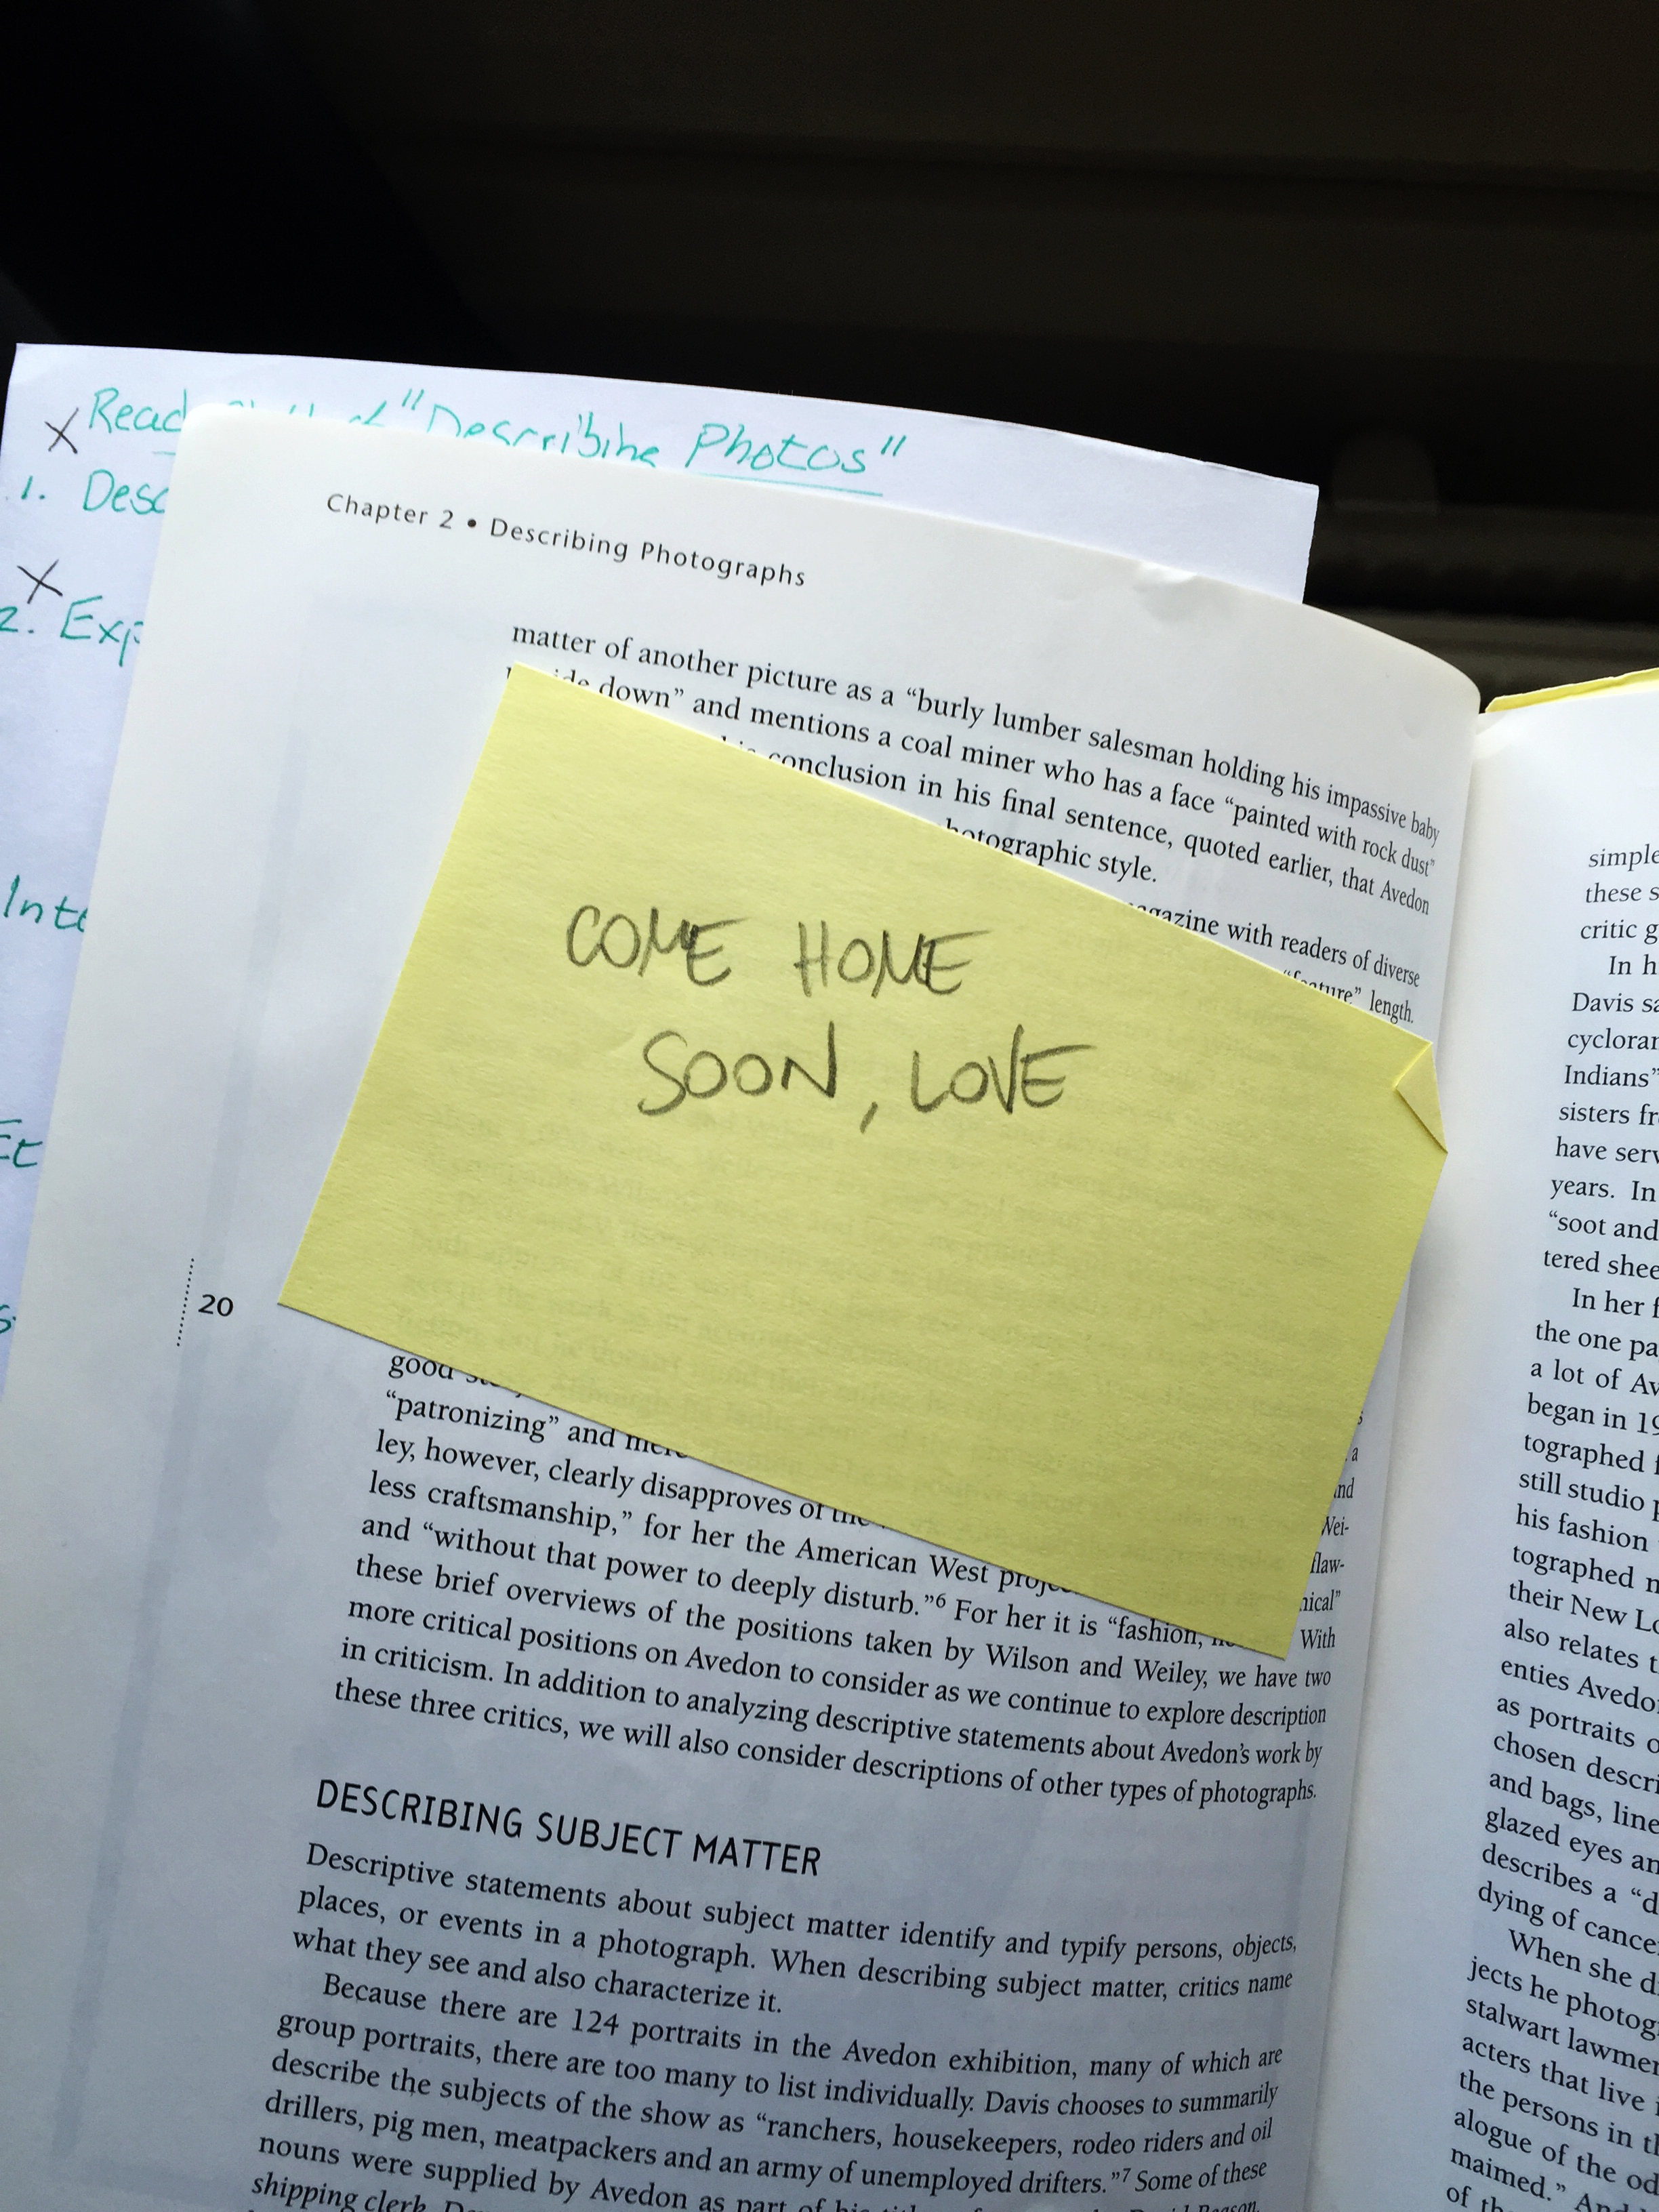 "Describing Photos"
1.
2.
Chapter 2 • Describing Photographs
matter of another picture as a “burly lumber salesman holding his impassive baby
down” and mentions a coal miner who has a face “painted with rock dust”
conclusion in his final sentence, quoted earlier, that Avedon
style.
with readers of diverse
length.
COME HOME
SOON, LOVE
20
good
“patronizing” and
ley, however, clearly disapproves of
less craftsmanship,” for her the American West
and “without that power to deeply disturb.”6 For her it is “fashion, With
these brief overviews of the positions taken by Wilson and Weiley, we have two
more critical positions on Avedon to consider as we continue to explore description
in criticism. In addition to analyzing descriptive statements about Avedon’s work by
these three critics, we will also consider descriptions of other types of photographs.
DESCRIBING SUBJECT MATTER
Descriptive statements about subject matter identify and typify persons, objects,
places, or events in a photograph. When describing subject matter, critics name
what they see and also characterize it.
Because there are 124 portraits in the Avedon exhibition, many of which are
group portraits, there are too many to list individually. Davis chooses to summarily
describe the subjects of the show as “ranchers, housekeepers, rodeo riders and oil
drillers, pig men, meatpackers and an army of unemployed drifters.”7 Some of these
nouns were supplied by Avedon as part of his
shipping clerk,
simple
these
critic
In
Davis
Indians”
sisters
have
years. In
“soot and
tered
In her
the one
a lot of
began in
tographed
still studio
his fashion
tographed
their New
also relates
enties
as portraits
chosen
and bags,
glazed eyes
describes a
dying of
When she
jects he
stalwart
acters that live
the persons in
alogue of the
maimed.” And
of